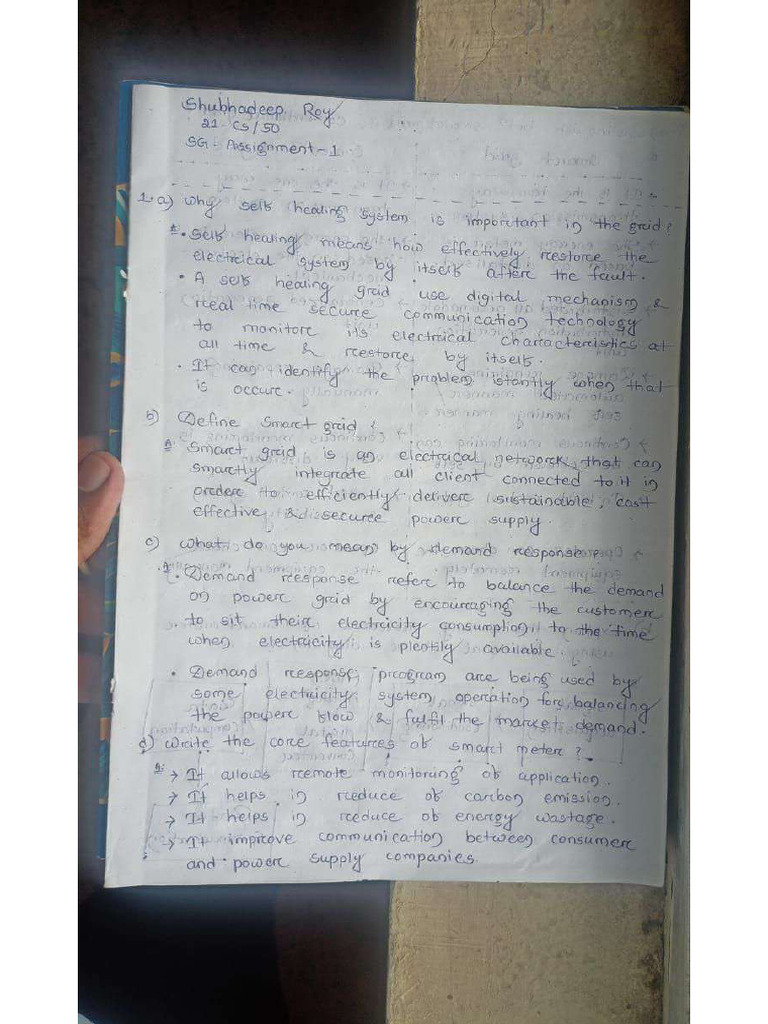 Shubhadeep Roy
21 CS/50
SG - Assignment - 1
1. a) Why self healing system is important in the grid?
A. • Self healing means how effectively restore the
electrical system by itself after the fault.
• A self healing grid use digital mechanism &
real time secure communication technology
to monitor its electrical characteristics at
all time & restore by itself.
• It can identify the problem istantly when that
is occure.
b) Define Smart grid?
A Smart grid is an electrical network that can
smartly integrate all client connected to it in
order to efficiently deliver sustainable, cost
effective & secure power supply.
c) What do you mean by demand response?
A. • Demand response refer to balance the demand
on power grid by encouraging the customer
to sit their electricity consumption to the time
when electricity is plently available.
• Demand response program are being used by
some electricity system operation for balancing
the power flow & fulfil the market demand.
d) Write the core features of smart meter?
A: → It allows remote monitoring of application.
→ It helps in reduce of carbon emission.
→ It helps in reduce of energy wastage.
→ It improve communication between consumer
and power supply companies.